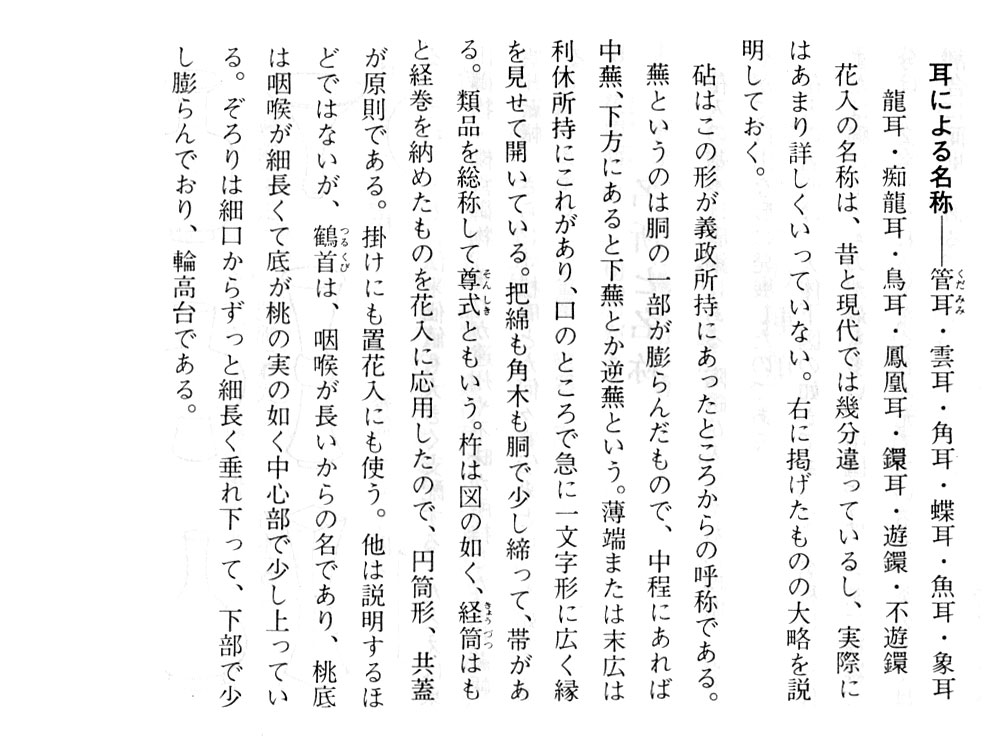 耳による名称――管耳・雲耳・角耳・蝶耳・魚耳・象耳
龍耳・痴龍耳・鳥耳・鳳凰耳・鐶耳・遊鐶・不遊鐶
花入の名称は、昔と現代では幾分違っているし、実際に
はあまり詳しくいっていない。右に掲げたものの大略を説
明しておく。
砧はこの形が義政所持にあったところからの呼称である。
蕪というのは胴の一部が膨らんだもので、中程にあれば
中蕪、下方にあると下蕪とか逆蕪という。薄端または末広は
利休所持にこれがあり、口のところで急に一文字形に広く縁
を見せて開いている。把綿も角木も胴で少し締って、帯があ
る。類品を総称して尊式ともいう。杵は図の如く、経筒はも
と経巻を納めたものを花入に応用したので、円筒形、共蓋
が原則である。掛けにも置花入にも使う。他は説明するほ
どではないが、鶴首は、咽喉が長いからの名であり、桃底
は咽喉が細長くて底が桃の実の如く中心部で少し上ってい
る。ぞろりは細口からずっと細長く垂れ下って、下部で少
し膨らんでおり、輪高台である。